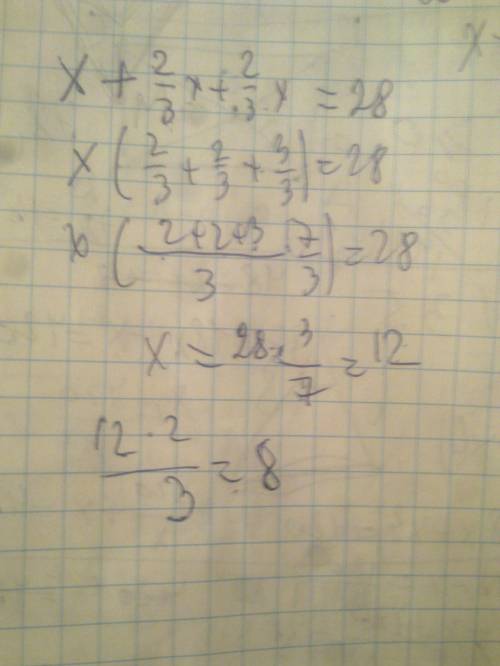 x + 2/3 x + 2/3 x = 28
x (2/3 + 2/3 + 3/3) = 28
x (2+2+3/3 7/3) = 28
x = 28 · 3/7 = 12
12 · 2/3 = 8